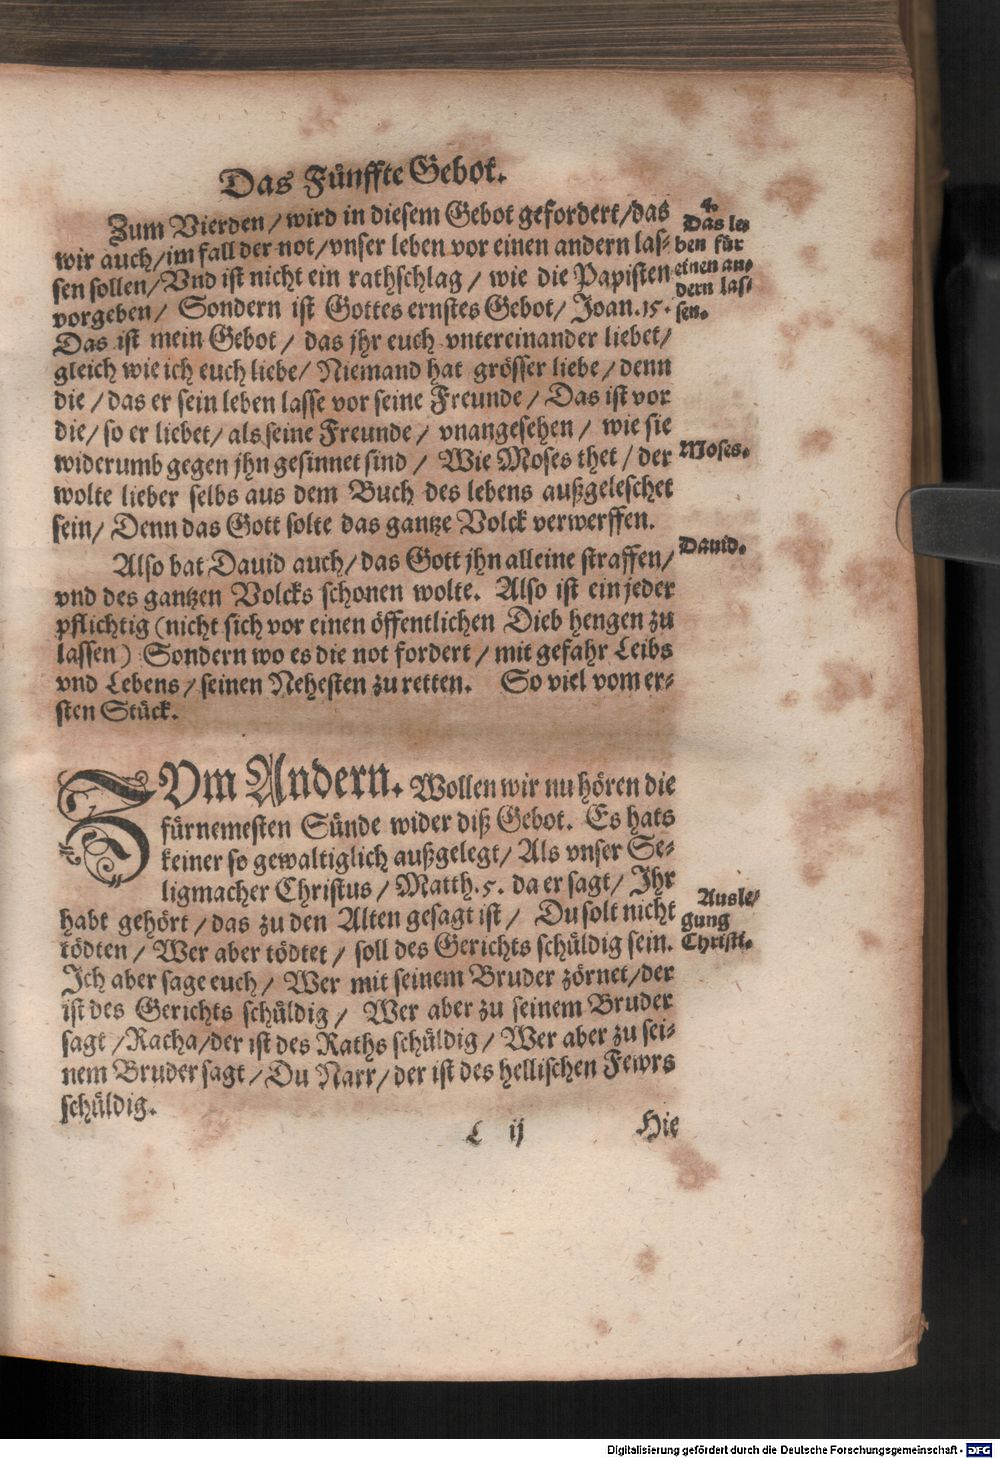 Das Fünffte Gebot.
Zum Vierden / wird in diesem Gebot gefordert/das
wir auch/im fall der not/vnser leben vor einen andern las-
sen sollen/Vnd ist nicht ein rathschlag / wie die Papisten
vorgeben/ Sondern ist Gottes ernstes Gebot/ Joan.15.
Das ist mein Gebot / das jhr euch vntereinander liebet/
gleich wie ich euch liebe/ Niemand hat grösser liebe / denn
die / das er sein leben lasse vor seine Freunde / Das ist vor
die/ so er liebet/ als seine Freunde / vnangesehen / wie sie
widerumb gegen jhn gesinnet sind / Wie Moses thet / der
wolte lieber selbs aus dem Buch des lebens außgeleschet
sein/ Denn das Gott solte das gantze Volck verwerffen.
4.
Das le-
ben für
einen an-
dern las-
sen.
Moses.
Also bat Dauid auch/ das Gott jhn alleine straffen/
vnd des gantzen Volcks schonen wolte. Also ist ein jeder
pflichtig (nicht sich vor einen öffentlichen Dieb hengen zu
lassen) Sondern wo es die not fordert / mit gefahr Leibs
vnd Lebens / seinen Nehesten zu retten. So viel vom er-
sten Stück.
Dauid.
ZVm Andern. Wollen wir nu hören die
fürnemesten Sünde wider diß Gebot. Es hats
keiner so gewaltiglich außgelegt/ Als vnser Se-
ligmacher Christus / Matth.5. da er sagt/ Ihr
habt gehört / das zu den Alten gesagt ist / Du solt nicht
tödten / Wer aber tödtet / soll des Gerichts schüldig sein.
Ich aber sage euch / Wer mit seinem Bruder zörnet/der
ist des Gerichts schüldig / Wer aber zu seinem Bruder
sagt /Racha/der ist des Raths schüldig / Wer aber zu sei-
nem Bruder sagt / Du Narr/ der ist des hellischen Fewrs
schüldig.
Ausle-
gung
Christi.
L ij
Hie
Digitalisierung gefördert durch die Deutsche Forschungsgemeinschaft - DFG